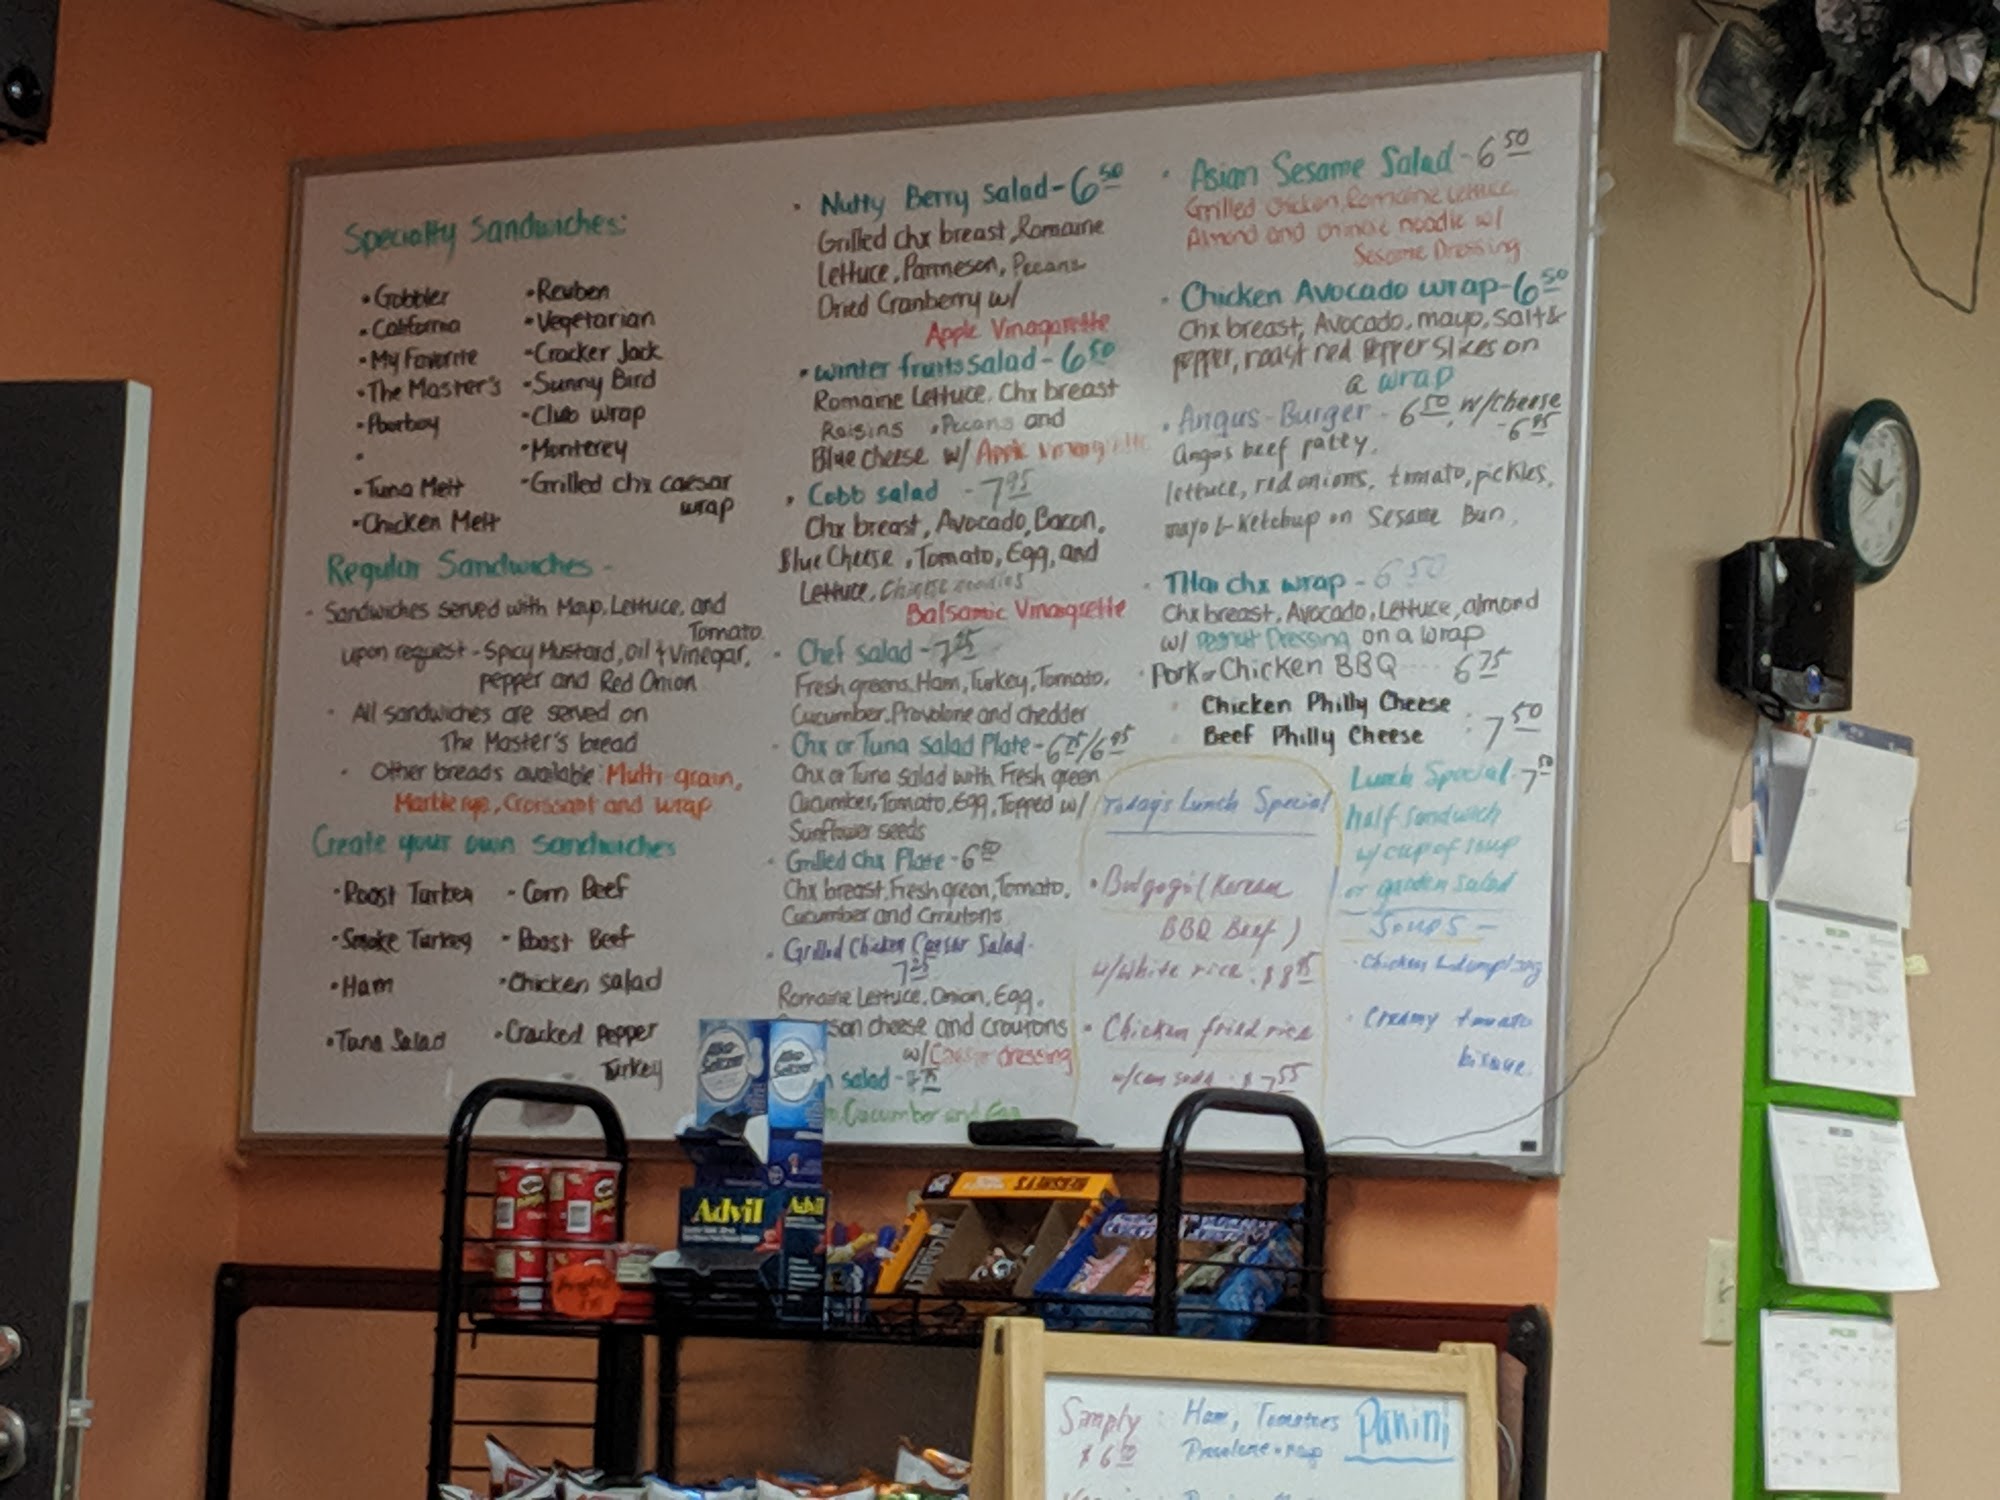 Specialty Sandwiches:
• Gobbler
• California
• My Favorite
• The Master's
• Poorboy
•
• Tuna Melt
• Chicken Melt
• Reuben
• Vegetarian
• Cracker Jack
• Sunny Bird
• Club wrap
• Monterey
• Grilled chx caesar
wrap
Regular Sandwiches -
• Sandwiches served with Mayo, Lettuce, and
Tomato.
upon request - Spicy Mustard, oil & Vinegar,
pepper and Red Onion
• All sandwiches are served on
The Master's bread
• Other breads available: Multi grain,
Marble rye, Croissant and wrap
Create your own sandwiches
• Roast Turkey
• Smoke Turkey
• Ham
• Tuna Salad
• Corn Beef
• Roast Beef
• Chicken salad
• Cracked Pepper
Turkey
• Nutty Berry salad - 6 50
Grilled chx breast, Romaine
Lettuce, Parmeson, Pecans
Dried Cranberry w/
Apple Vinagarette
• Winter fruits salad - 6 50
Romaine Lettuce, Chx breast
Raisins, Pecans and
Blue cheese w/ Apple
• Cobb salad - 7 95
Chx breast, Avocado, Bacon,
Blue Cheese, Tomato, Egg, and
Lettuce, Chinese noodles
Balsamic Vinaigrette
• Chef salad - 7 25
Fresh greens, Ham, Turkey, Tomato,
Cucumber, Provolone and chedder
• Chx or Tuna Salad Plate - 6 75/6 95
Chx or Tuna salad with Fresh green
Cucumber, Tomato, Egg, Topped w/
Sunflower seeds
• Grilled chx Plate - 6 50
Chx breast, Fresh green, Tomato,
Cucumber and Croutons
• Grilled Chicken Caesar Salad -
7 25
Romaine Lettuce, Onion, Egg,
son cheese and croutons
w/ Caesar dressing
salad -
Cucumber and Egg
• Asian Sesame Salad - 6 50
Grilled chicken, Romaine Lettuce
Almond and chinese noodle w/
Sesame Dressing
• Chicken Avocado wrap - 6 50
Chx breast, Avocado, mayo, salt &
pepper, roast red pepper slices on
a wrap
• Angus-Burger - 6 50, w/cheese
- 6 95
Angus beef patty,
lettuce, red onions, tomato, pickles,
mayo & Ketchup on Sesame Bun,
• THai chx wrap - 6 50
Chx breast, Avocado, Lettuce, almond
w/ Peanut Dressing on a wrap
• Pork or Chicken BBQ ---- 6 75
• Chicken Philly Cheese
• Beef Philly Cheese : 7 50
Today's Lunch Special
• Bulgogi (Korean
BBQ Beef)
w/White rice. $ 8 95
• Chicken fried rice
w/can soda • $ 7 55
Lunch Special - 7 50
half sandwich
w/ cup of soup
or garden salad
Soups -
• Chicken & dumpling
• Creamy tomato
bisque.
Alka-Seltzer
Alka-Seltzer
Advil
Advil
Simply : Ham, Tomatoes Panini
$ 6 50 Provolone